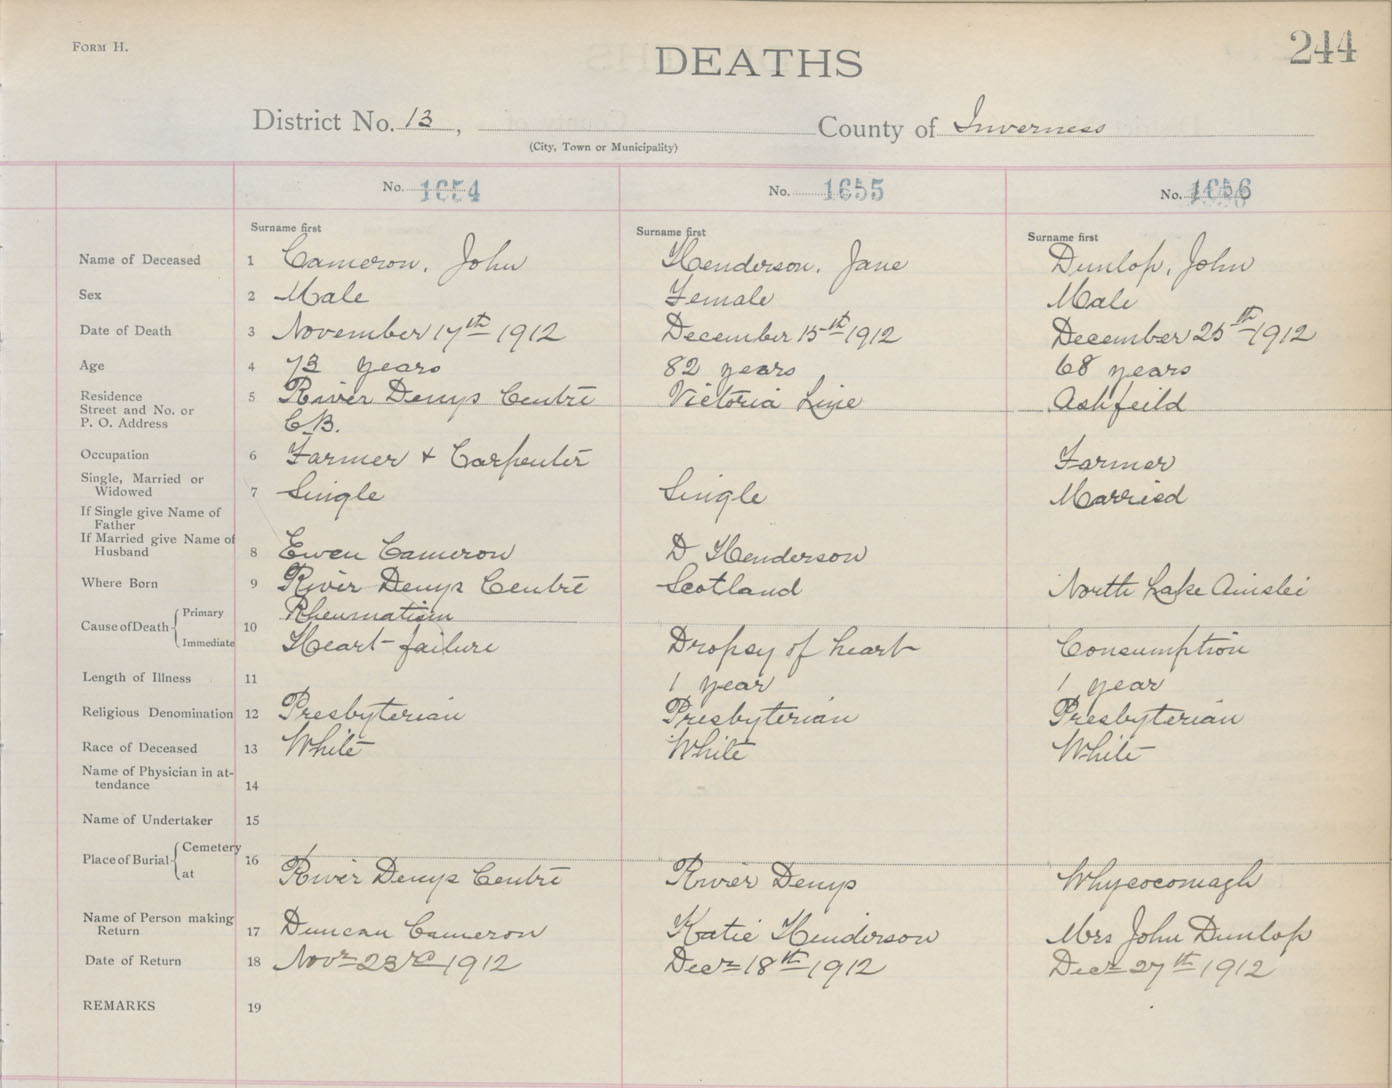 FORM H.
DEATHS
244
District No. 13, County of Inverness
(City, Town or Municipality)
No. 1654 No. 1655 No. 1656
Surname first Surname first Surname first
Name of Deceased 1 Cameron, John Henderson, Jane Dunlop, John
Sex 2 Male Female Male
Date of Death 3 November 17th 1912 December 15th 1912 December 25th 1912
Age 4 73 years 82 years 68 years
Residence 5 River Denys Centre Victoria Line Ashfeild
Street and No. or
P. O. Address C.B.
Occupation 6 Farmer + Carpenter Farmer
Single, Married or
Widowed 7 Single Single Married
If Single give Name of
Father
If Married give Name of
Husband 8 Ewen Cameron D Henderson
Where Born 9 River Denys Centre Scotland North Lake Ainslei
Cause of Death Primary 10 Rheumatism
Immediate Heart failure Dropsy of heart Consumption
Length of Illness 11 1 year 1 year
Religious Denomination 12 Presbyterian Presbyterian Presbyterian
Race of Deceased 13 White White White
Name of Physician in at-
tendance 14
Name of Undertaker 15
Place of Burial Cemetery 16
at River Denys Centre River Denys Whycocomagh
Name of Person making
Return 17 Duncan Cameron Katie Henderson Mrs John Dunlop
Date of Return 18 Novr 23rd 1912 Decr 18th 1912 Decr 27th 1912
REMARKS 19